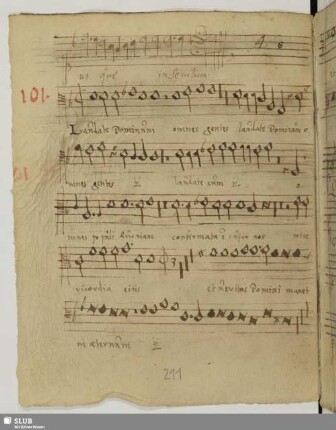 in secula
101.
Laudate Dominum omnes gentes laudate Dominum o
mnes gentes ij laudate eum ij o
mnes populi quoniam confirmata e super nos mise
ricordia eius et veritas Domini manet
in æternum ij
211
SLUB